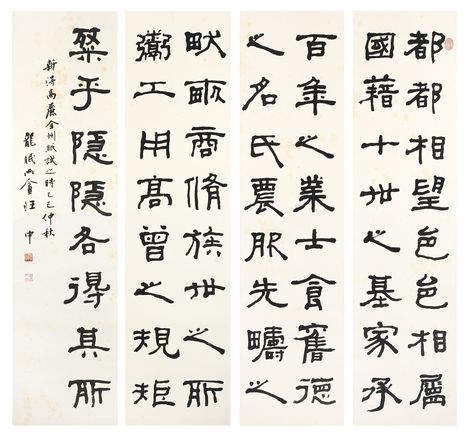 都都相望邑邑相屬
國藉十世之基家承
百年之業士食舊德
之名氏農服先疇之
畎畝商脩族世之所
鬻工用高曾之規矩
粲乎隱隱各得其所
新得高麗全州紙試之時乙巳仲秋
龍眠雨盦汪中